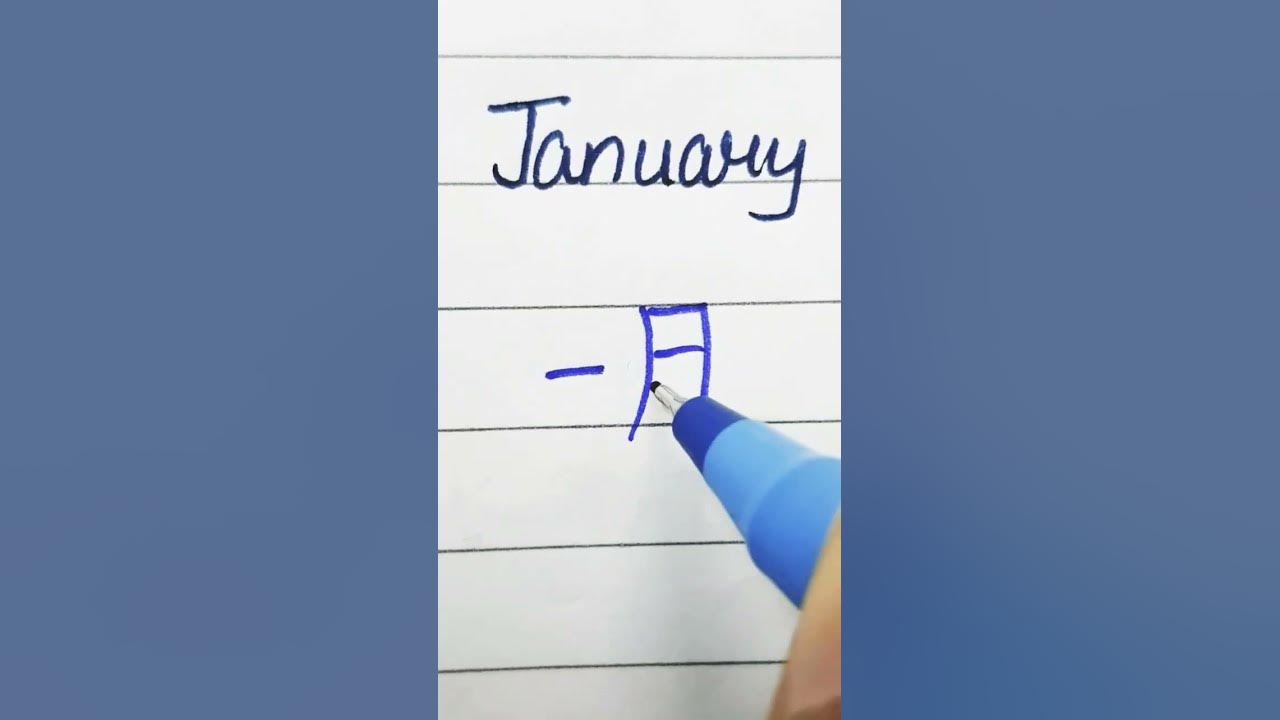 January
一月